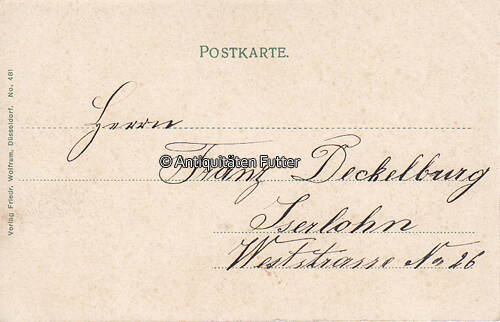 POSTKARTE.
Herrn
© Antiquitäten Futter
Franz Deckelburg
Iserlohn
Weststrasse No 26
Verlag Friedr. Wolfram, Düsseldorf. No. 481